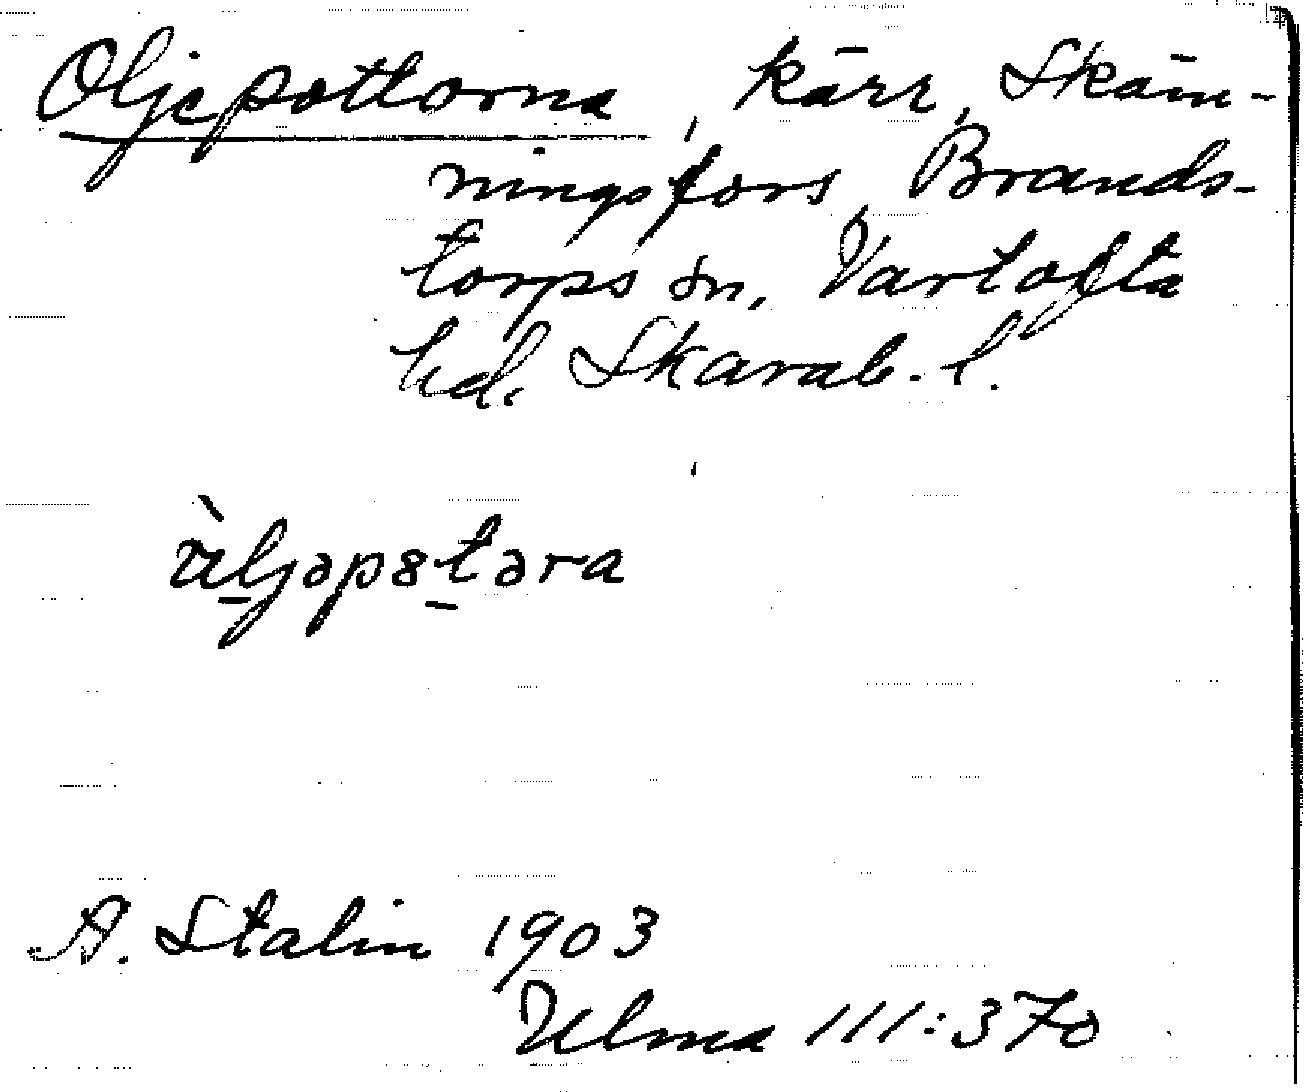 Oljepottorna, kärr, Skäm-
ningsfors, Brands-
torps sn, Vartofta
hd. Skarab. l.
A. Stalin 1903
Ulma 111:370